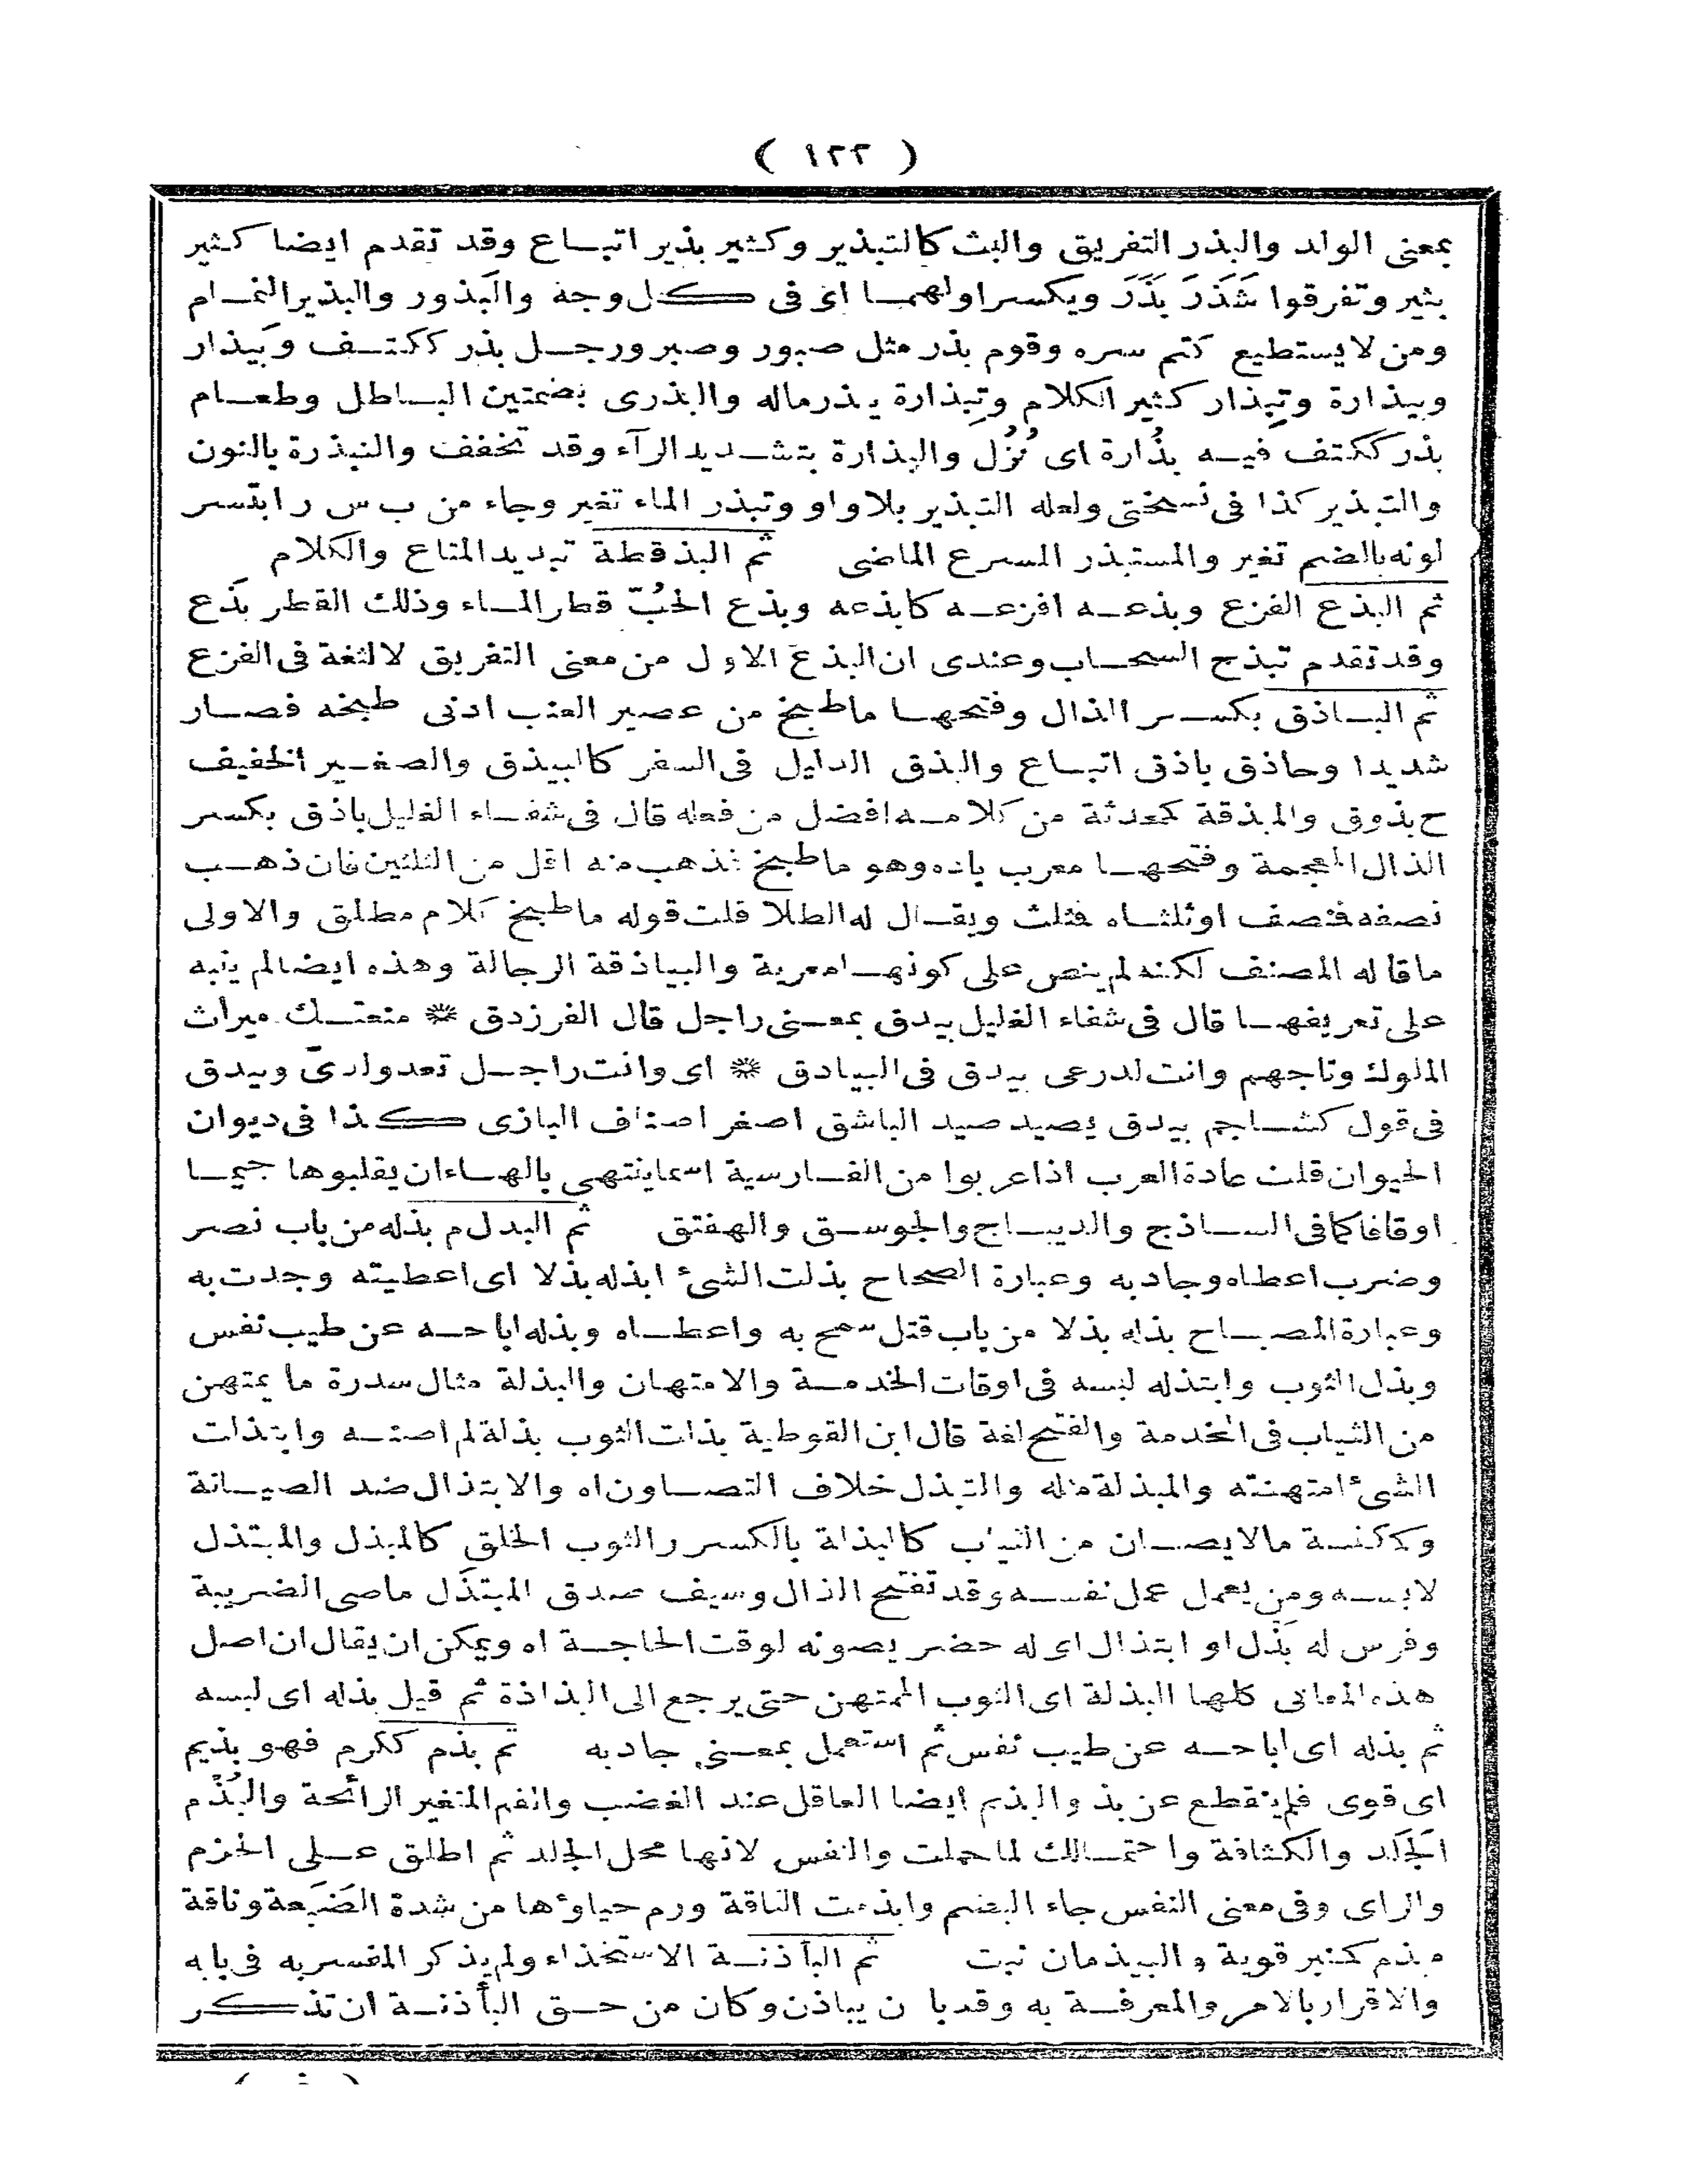 ( ١٢٢ )
بمعنى الولد والبذر التفريق والبث كالتبذير وكثير بذير اتبـاع وقد تقدم ايضا كثير
بثير وتفرقوا شَذَرَ بَذَرَ ويكسر اولهمـا اى فى كل وجه والبَذور والبذير النمـام
ومن لا يستطيع كتم سره وقوم بذر مثل صبور وصبر ورجـل بذر ككتـف وبَيذار
وبيذارة وتِبِذار كثير الكلام وتِبِذارة يبذر ماله والبذرى بضمتين البـاطل وطعـام
بذر ككتف فيـه بُذُارة اى نُزُل والبذارة بتشـديد الرآء وقد تخفف والنبذرة بالنون
والتبذير كذا فى نسختى ولعله التبذير بلا واو وتبذر الماء تغير وجاء من ب س ر ابتسر
لونه بالضم تغير والمستبذر المسرع الماضى ثم البذقطة تبديد المتاع والكلام
ثم البذع الفزع وبذعـه افزعـه كابذعه وبذع الحُبّ قطر المـاء وذلك القطر بَذع
وقد تقدم تبذح السحـاب وعندى ان البذع الاول من معنى التفريق لا لثغة فى الفزع
ثم البـاذق بكسـر الذال وفتحهـا ما طبخ من عصير العنب ادنى طبخه فصـار
شديدا وحاذق باذق اتبـاع والبذق الدليل فى السفر كالبيذق والصغـير الخفيف
ح بذوق والمبذقة كمحدثة من كلامـه افضل من فعله قال فى شفـاء الغليل باذق بكسر
الذال المعجمة وفتحهـا معرب باده وهو ما طبخ فذهب منه اقل من الثلثين فان ذهـب
نصفه فمنصف او ثلثـاه فمثلث ويقـال له الطلا قلت قوله ما طبخ كلام مطلق والاولى
ما قاله المصنف لكنه لم ينص على كونهـا معربة والبياذقة الرجالة وهذه ايضا لم ينبه
على تعريفهـا قال فى شفاء الغليل بيدق بمعـنى راجل قال الفرزدق ※ منعتـك ميراث
الملوك وتاجهم وانت لدرعى بيدق فى البيادق ※ اى وانت راجـل تعدو لدىّ وبيدق
فى قول كشـاجم بيدق يصيد صيد الباشق اصغر اصناف البازى كذا فى ديوان
الحيوان قلت عادة العرب اذا عربوا من الفـارسية اسما ينتهى بالهـاء ان يقلبوها جيمـا
او قافا كما فى السـاذج والديبـاج والجوسـق والهفتق ثم البذل م بذله من باب نصر
وضرب اعطاه وجاد به وعبارة الصحاح بذلت الشىء ابذله بذلا اى اعطيته وجدت به
وعبارة المصبـاح بذله بذلا من باب قتل سمح به واعطـاه وبذله اباحـه عن طيب نفس
وبذل الثوب وابتذله لبسه فى اوقات الخدمـة والامتهان والبذلة مثال سدرة ما يمتهن
من الثياب فى الخدمة والفتح لغة قال ابن القوطية بذلت الثوب بذلة لم اصنـه وابتذلت
الشىء امتهنته والمبذلة مثله والتبذل خلاف التصـاون اه والابتذال ضد الصيـانة
وككنسة ما لا يصـان من الثياب كالبذلة بالكسر والثوب الخلق كالمبذل والمبتذل
لابسـه ومن يعمل عمل نفسـه وقد تفتح الذال وسيف صدق المبتذَل ماضى الضريبة
وفرس له بَذل او ابتذال اى له حضر يصونه لوقت الحاجـة اه ويمكن ان يقال ان اصل
هذه المعانى كلها البذلة اى الثوب الممتهن حتى يرجع الى البذاذة ثم قيل بذله اى لبسه
ثم بذله اى اباحـه عن طيب نفس ثم استعمل بمعـنى جاد به ثم بذم ككرم فهو بذيم
اى قوى فلم ينقطع عن بذ والبذيم ايضا العاقل عند الغضب والفم المتغير الرائحة والبُذْم
الجَلَد والكثافة واحتمـالك لما حملت والنفس لانها محل الجلد ثم اطلق عـلى الحزم
والراى وفى معنى النفس جاء البضم وابذمت الناقة ورم حياؤها من شدة الضَبَعة وناقة
مبذم كمنبر قوية والبيذمان نبت ثم البأذنـة الاستخذاء ولم يذكر المفسر به فى بابه
والاقرار بالامر والمعرفـة به وقد بأذن يباذن وكان من حـق البأذنـة ان تذكر